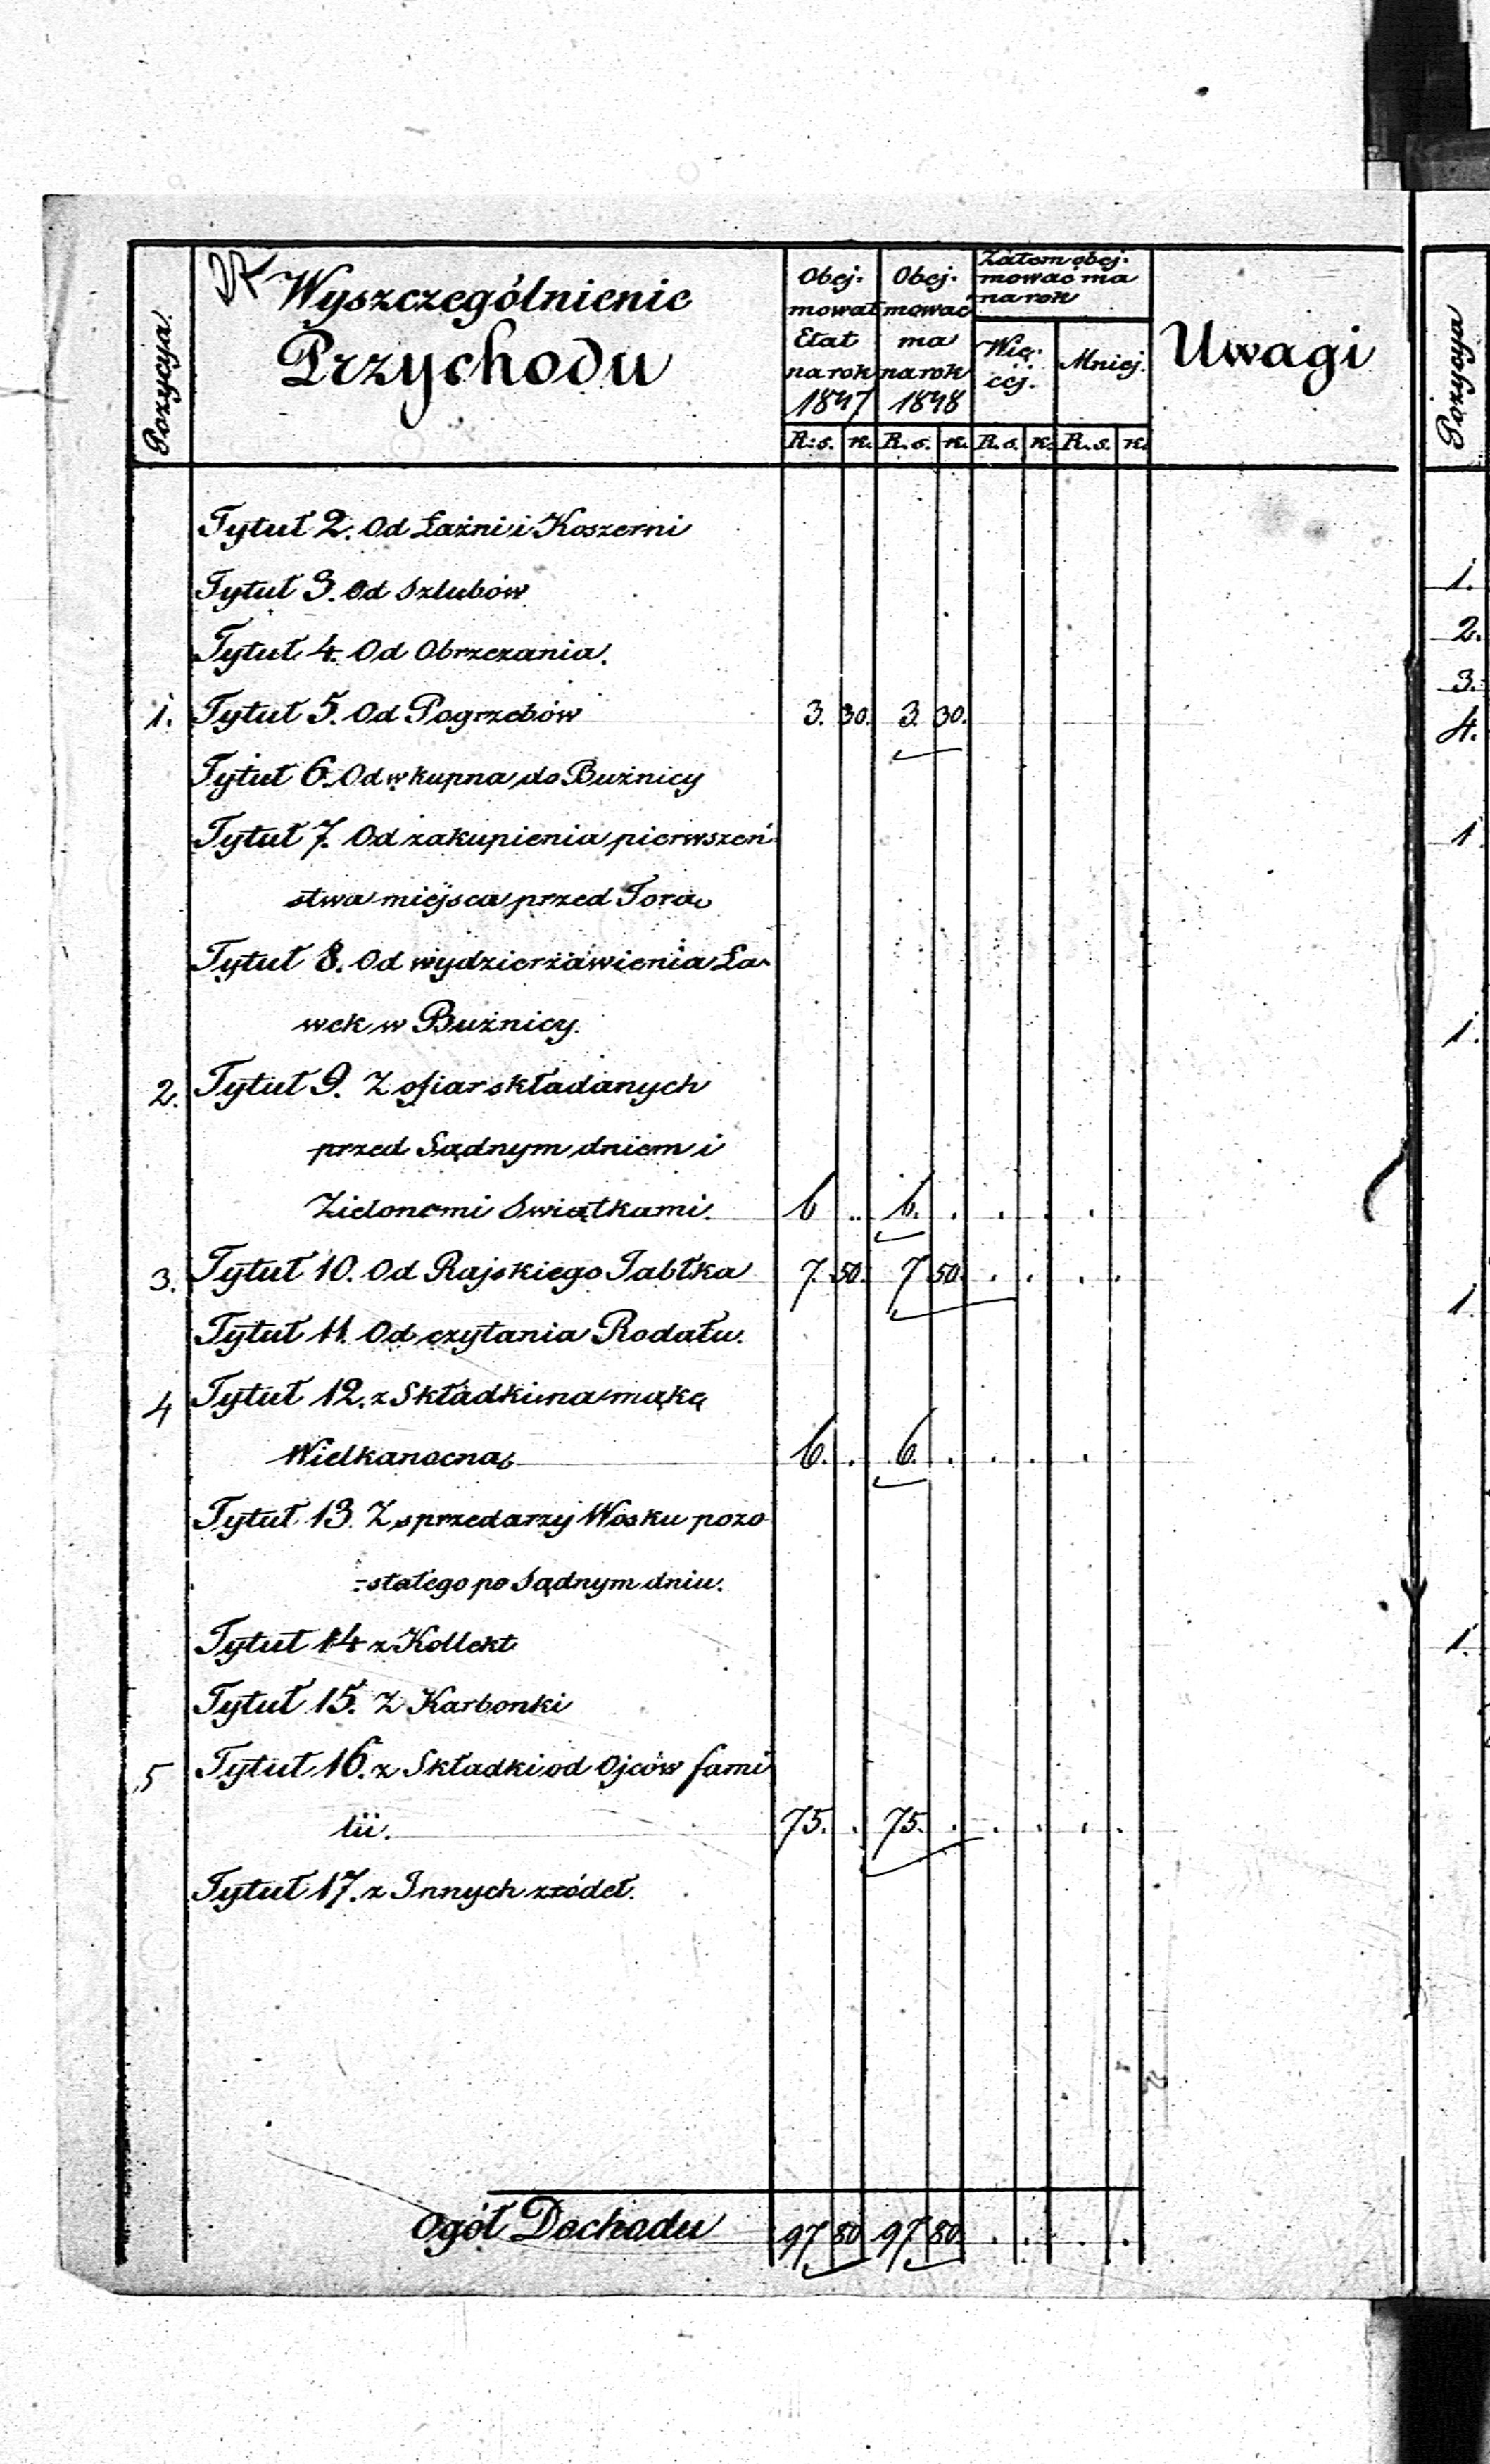 Pozycya.
Wyszczególnienie
Przychodu
Obej-
mował
Etat
na rok
1847
Obej-
mować
ma
na rok
1848
Zatem obej-
mować ma
na rok
Wię-
céj.
Mniej.
Uwagi
R: s. k. R. s. k. R. s. k. R. s. k.
Tytuł 2. Od Łaźni i Koszerni
Tytuł 3. Od Szlubów
Tytuł 4. Od Obrzezania.
1. Tytuł 5. Od Pogrzebów 3. 30. 3. 30.
Tytuł 6. Od wkupna do Bużnicy
Tytuł 7. Od zakupienia pierwszeń
stwa miejsca przed Tora
Tytuł 8. Od wydzierżawienia Ła-
wek w Bużnicy.
2. Tytuł 9. Z ofiar składanych
przed Sądnym dniem i
Zielonemi Swiątkami. 6 .. 6. . . . .
3. Tytuł 10. Od Rajskiego Jabłka 7. 50. 7 50. . . . .
Tytuł 11. Od czytania Rodału.
4 Tytuł 12. z Składki na mąkę
Wielkanocną 6. . 6. . . . .
Tytuł 13. Z sprzedarzy Wosku pozo
-stałego po Sądnym dniu.
Tytuł 14 z Kollekt
Tytuł 15. Z Karbonki
5 Tytuł 16. z Składki od Ojców fami
lii. 75. . 75. . . . . .
Tytuł 17. z Innych zródeł.
Ogół Dochodu 97 80 97 80. . . . .
Pozycya
1.
2.
3.
4.
1.
1.
1.
1.